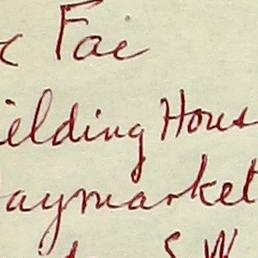 c Fae
ielding Hous
aymarket
S.W